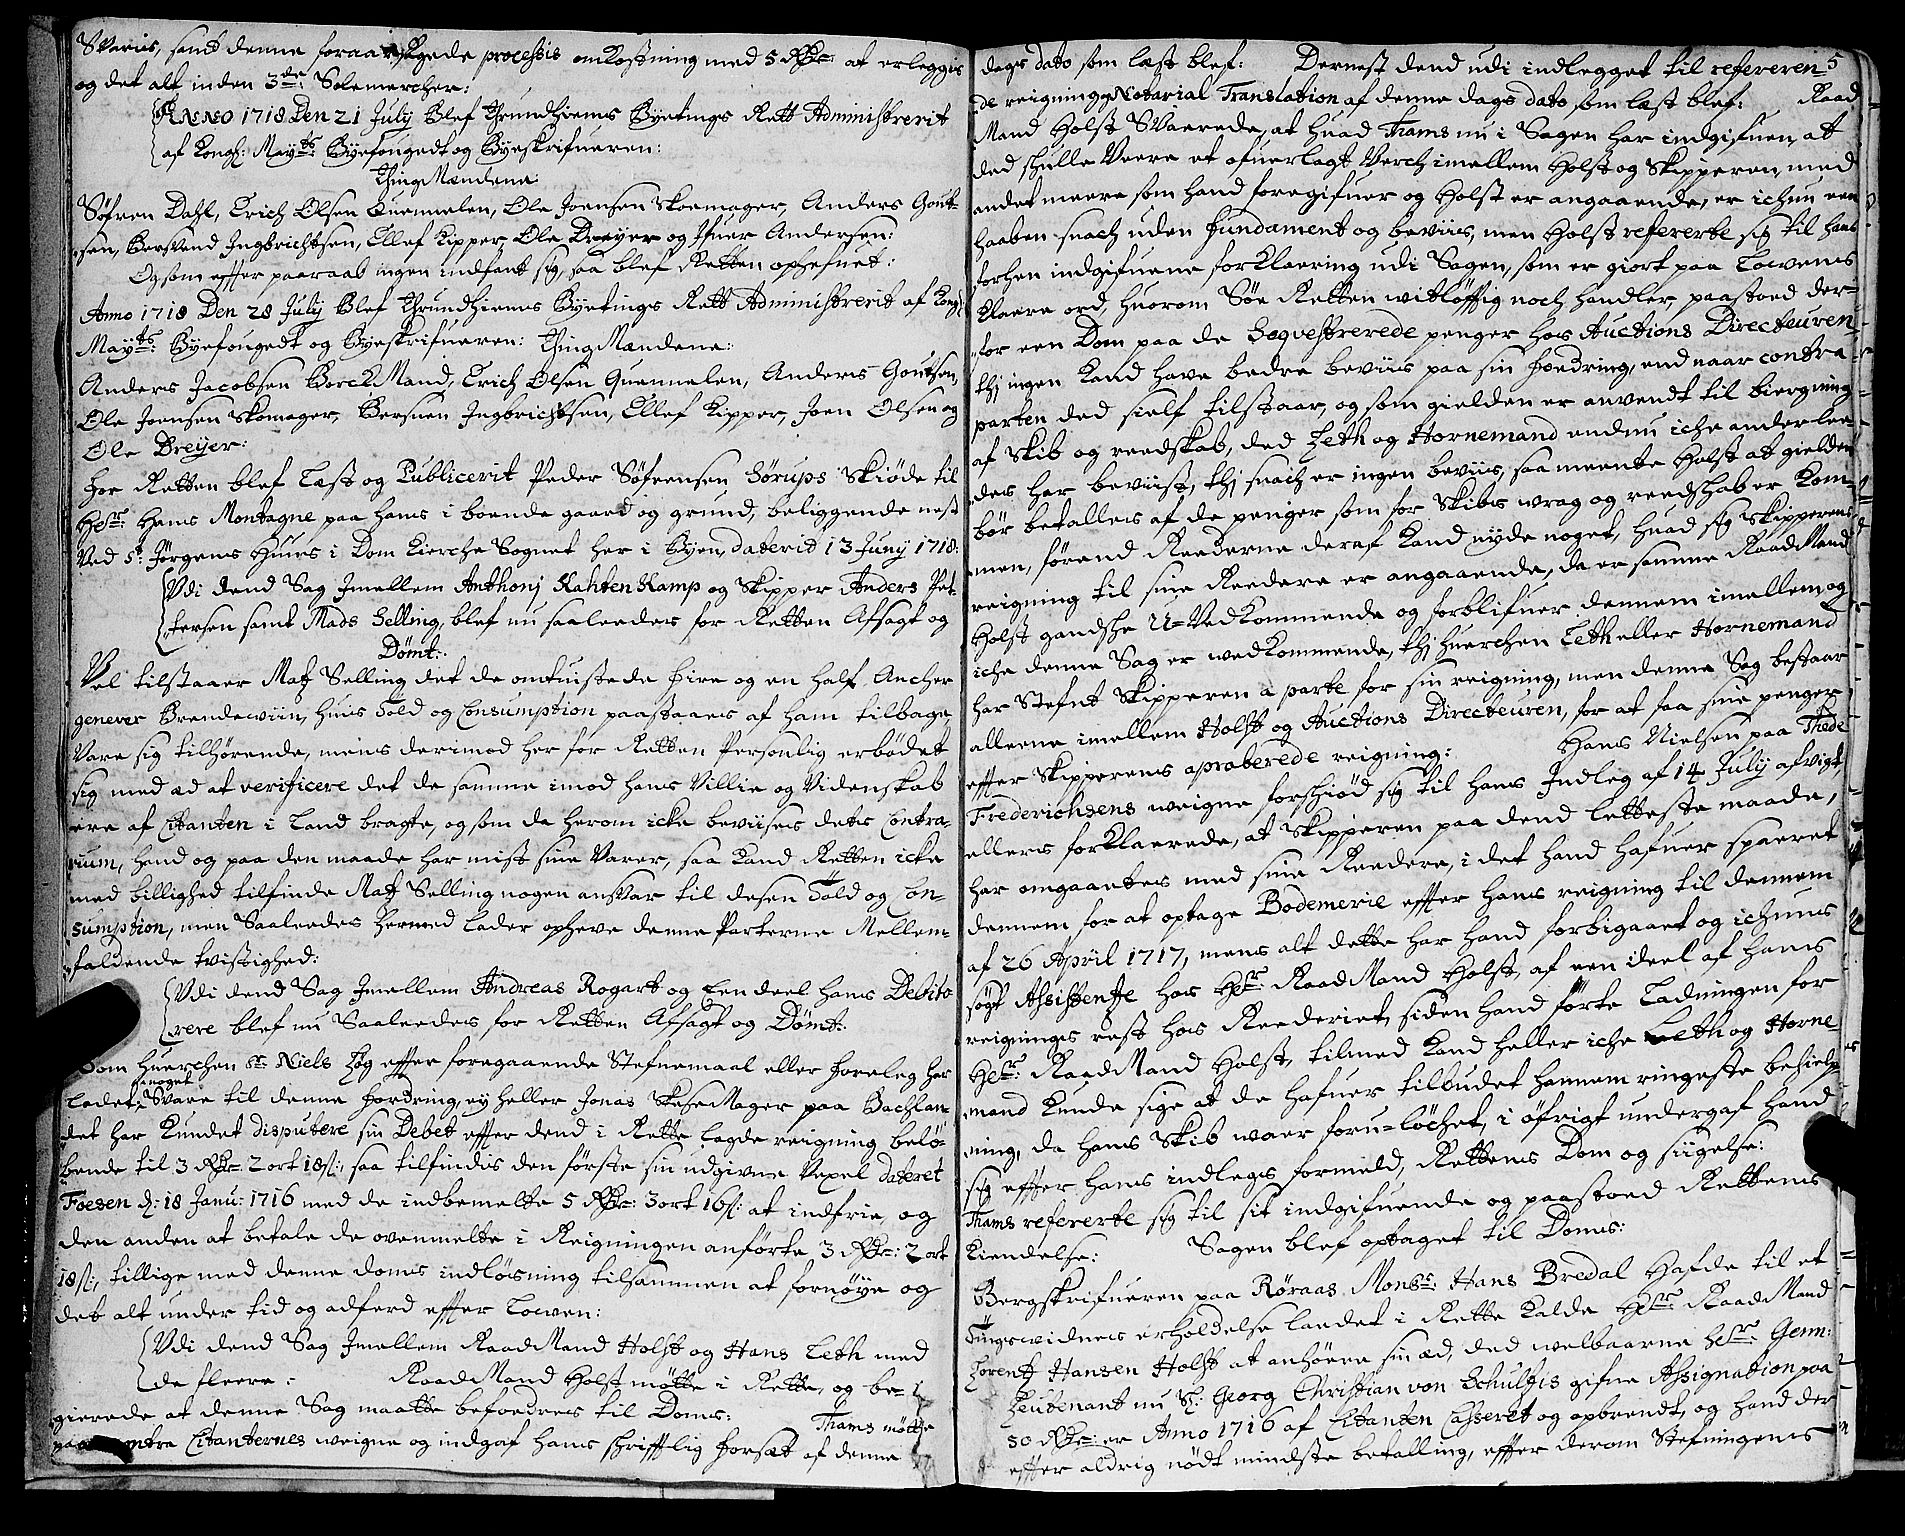 Svaris, samt denne foraarsagede processis omkostning med 5 Rdr: at erlegges
og det alt inden 3de: Solemercher:
ANNO 1718 Den 21 July Blef Thrundhiems Byetings Rett Administrerit
af Kongl: Mayts: Byefougedt og Byeskrifueren:
Thing Mændene:
Søfren Dahl, Erich Olsen Quennelen, Ole Joensen Skoemager, Anders Gout-
sen, Bersvend Ingbrichtsen, Ellef Kipper, Ole Dreyer og Ifuer Andersen:
Og som effter paaraab ingen indfant sig, saa blef Retten ophefuet:
Anno 1718 Den 28 July Blef Thrundhiems Byetings Rett Administrerit af Kongl
Mayts: Byefougedt og Byeskrifueren: Thing Mændene:
Anders Jacobsen BorckMand, Erich Olsen Quennelen, Anders Goutsen,
Ole Joensen Skomager, Bersuen Ingbrichtsen, Ellef Kipper, Joen Olsen og
Ole Dreyer:
for Retten blef Læst og Publicerit Peder Søfrensen Sørups Skiøde til
Hesr: Hans Montagne paa hans i boende gaard og grund, beliggende nest
Ved St Jørgens Huus i Dom Kierche Sognet her i Byen, daterit 13 Juny 1718:
Udi dend Sag Imellem Anthonj Kahten Kamp og Skipper Anders Pet-
tersen samt Mads Selling, blef nu saaleedes for Retten Afsagt og
Dømt:
Vel tilstaaer Matz Selling det de omtuistede fire og en half Ancher
genever Brendewiin, huis Told og Consumption paastaaes af ham tilbage,
Vare sig tilhørende, mens derimod her for Retten Personlig erbødet
sig med æd at verificere det de samme imod hans Villie og Videnskab
ere af Citanten i Land bragte, og som da herom icke beviises dets Contra-
rium, hand og paa den maade har mist sine Varer, saa kand Retten icke
med billighed tilfinde Matz Selling nogen ansvar til desen Told og Con-
sumption, men Saaleedes hermed lader opheve denne Parterne Mellem-
faldende tvistighed:
Udi dend Sag Imellem Andreas Rogart og Een deel hans Debito
rere blef nu Saaleedes for Retten Afsagt og Dømt:
Som huerchen Sr: Niels Høg effter foregaaende Stefnemaal eller foreleg har
Ladet noget Svare til denne fordring, ey heller Jonas SkoeMager paa Bachlan
det har Kundet disputere sin Debet effter dend i Rette lagde reigning belø-
bende til 3 Rdr: 2 ort 18 s:, saa tilfindis den første sin udgivne Vexel dateret
Foesen d: 18 Janu: 1716 med de indbemelte 5 Rdr: 3 ort 16 s: at indfrie, og
den anden at betale de ovenmelte i Reigningen anførte 3 Rdr: 2 ort
18 s:, tillige med denne doms indløsning tilsammen at fornøye og
det alt under tid og adferd effter Lowen:
Udi dend Sag Imellem RaadMand Holst og Hans Leth med
de fleere: RaadMand Holst møtte i Rette, og be-
gierede at denne Sag maatte befordres til Doms: Thams møtte
paa Contra Citanternes weigne og indgaf hans skrifftlig forsæt af denne
dags dato som læst blef: Dernest dend udi indlegget til refereren- 5
de reigning Notarial Translation af denne dags dato som læst blef: Raad
Mand Holst Svarede, at huad Thams nu i Sagen har indgifuen, at
ded skulle Veere et ofuerlagt Verch imellem Holst og Skipperen, med
andet meere som hand foregifuer og Holst er angaaende, er ichun een
haaben snach uden Fundament og beviis, men Holst refererte sig til hans
forhen indgifuene forklaering udi Sagen, som er giort paa Lowens
Klaere ord, huorom Søe Retten witløfftig noch handler, paastoed der-
for een Dom paa de Seqvestrerede penger hos Auctions Directeuren,
thj ingen Kand have bedre beviis paa sin fordring, end naar contra-
parten ded sielf tilstaar, og som gielden er anvendt til biergning
af Skib og reedskab, ded Leth og Hornemand endnu iche anderlee-
des har beviist, thj snach er ingen beviis, saa meente Holst at gielden
bør betalles af de penger som for Skibs wrag og reedschab er Kom-
men, førend Reederne deraf Kand nyde noget, huad sig Skipperens
reigning til sine Reedere er angaaende, da er samme RaadMand
Holst gandsche U-Vedkommende og forblifuer dennem imellem og
iche denne Sag er wedkommende, thj huerchen Leth eller Hornemand
har Stefnt Skipperen a parte for sin reigning, men denne Sag bestaar
alleene imellem Holst og Auctions Directeuren, for at faa sine penger
effter Skipperens aproberede reigning: Hans Nielsen paa Thede
Frederichsens weigne forschiød sig til hans Indleg af 14 July afvigt,
ellers forklaerede, at Skipperen paa dend letteste maade,
har omgaaetes med sine Reedere, i det hand hafuer spaeret
dennem for at optage Bodemerie effter hans reigning til dennem
af 26 April 1717, mens alt dette har hand forbigaaet og ichuns
søgt Assistentze hos Hesr: RaadMand Holst, af een deel af hans
reignings rest hos Reederiet, siden hand førte Ladningen for
Hesr: RaadMand Holst, tilmed Kand heller iche Leth og Horne-
mand Kunde sige at de hafuer tilbudet hannem ringeste behielp-
ning, da hans Skib waer foru-løchet, i øfrigt undergaf hand
sig effter hans indlegs formeld, Rettens Dom og siigelse:
Thams refererte sig til sit indgifuende og paastoed Rettens
Kiendelse: Sagen blef optaget til Doms:
Bergskrifueren paa Røraas Monsr: Hans Bredal Hafde til et
Tingswidnes erholdelse ladet i Rette Kalde Hesr: RaadMand
Lorentz Hansen Holst at anhøre sin æd, ded welbaarne Hesr: Genn:
Leutenant nu Sl: Georg Christian von Schultzis gifne Assignation paa
50 Rdr: er Anno 1716 af Citanten Casseret og opbrendt, og hand der
effter aldrig nødt mindste betalling, effter derom Stefningens